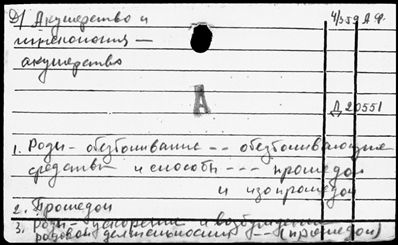 D/ Акушерство и 4/359 А Ф.
гинекология —
акушерство
А
Д 20551
1. Роды - обезболивание -- обезболивающие
средства и способы --- промедол
и изопромедол
2. Промедол
3. Роды - ускорение и возбуждение
родовой деятельности -- (промедол)